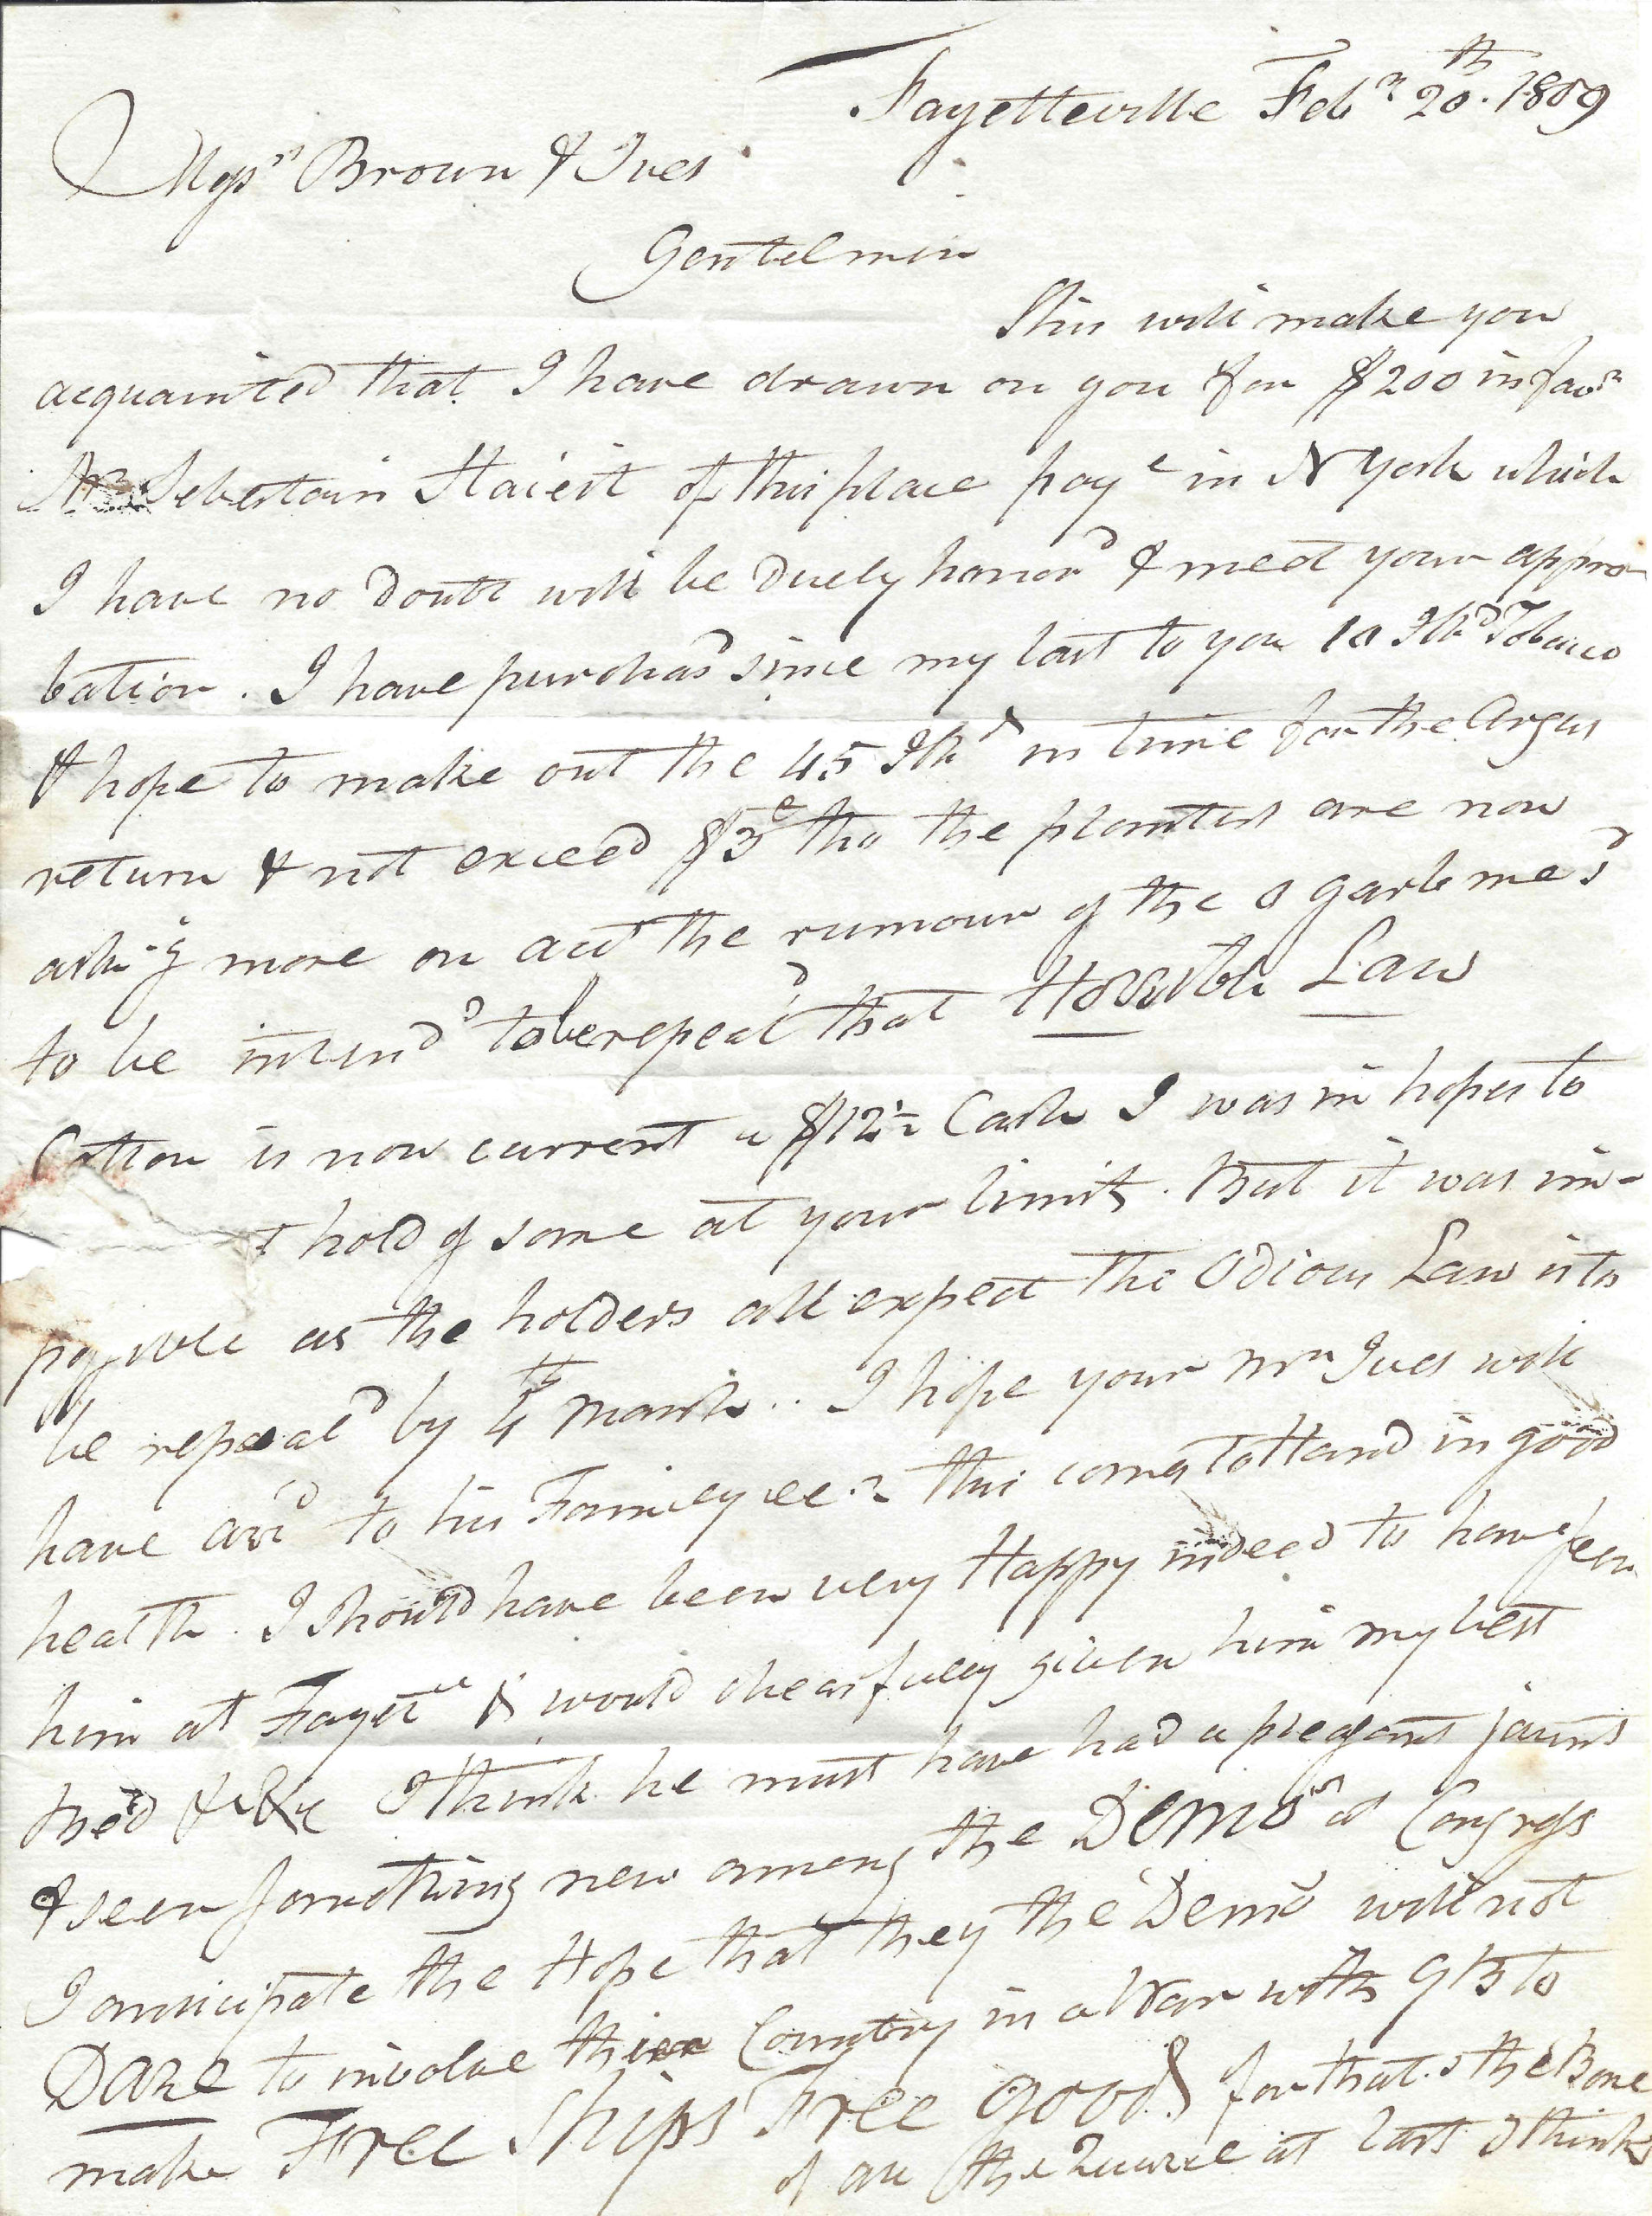 Fayetteville Feb.y 20th. 1809
Messrs Brown & Ives
Gentelmin
This will make you
acquainted that I have drawn on you for $200 in favr
Mr Sebestain Staiert of this place paye in N York which
I have no doubt will be duely honord & meet your appro
bation. I have purchasd since my last to you 10 Hhd Tobacco
& hope to make out the 45 Hhds in time for the Argus
return & not exceed $3 tho the planters are now
askig more on acct the rumour of the Ogarbme's
to be intend to be repeald that Horrible Law
Cotton is now current a $12½ Cash I was in hopes to
t hold of some at your limits. But it was im-
possible as the holders all expect the Odious Law is to
be repeald by 4th March.. I hope your Mr Ives will
have arrd to his Familey eer this comes to Hand in good
health. I should have been very Happy indeed to have seen
him at Fayette & would chearfully given him my best
bed &c &c I think he must have had a pleasant jaunt
& seen something new among the Demos at Congress
I anticipate the Hope that they the Demo will not
Dare to involve thier Country in a War with GB to
make Free Ships Free Goods for that is the Bone
of all the at last I think